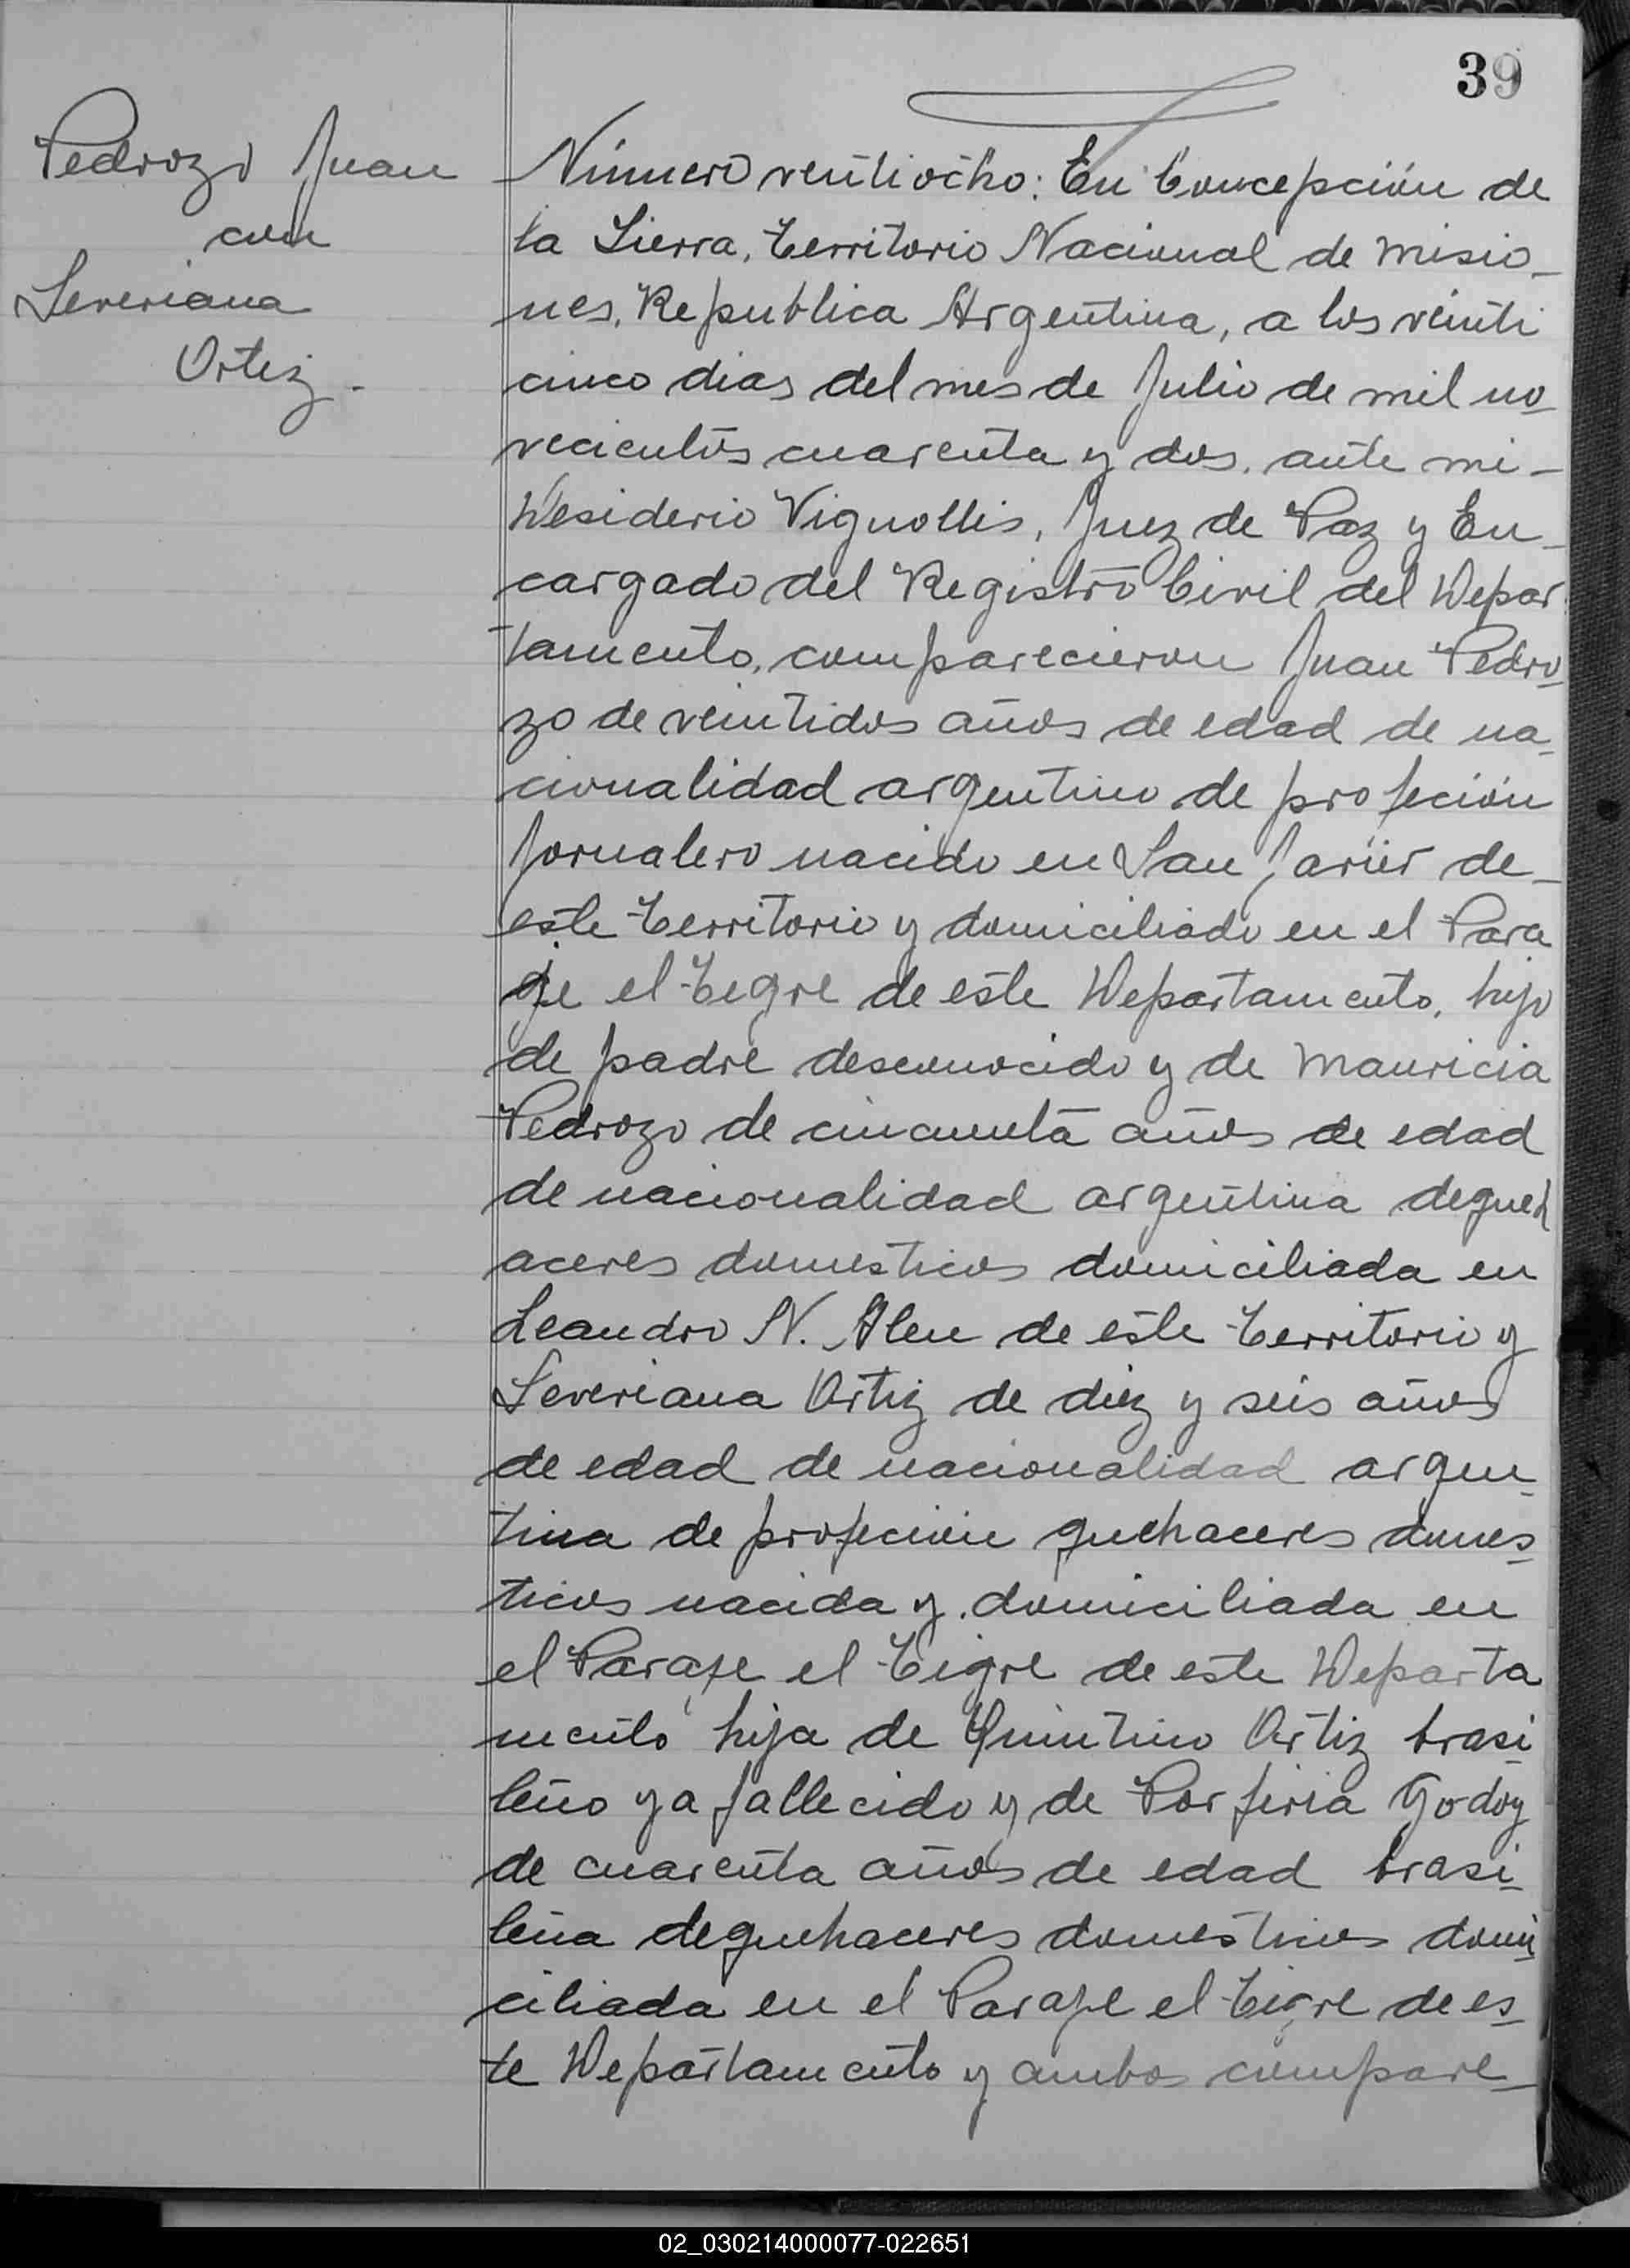 39
Pedrozo Juan
con
Severiana
Ortiz.
Número ventiocho: En Concepción de
la Sierra, Territorio Nacional de Misio_
nes, Republica Argentina, a los veinti
cinco dias del mes de Julio de mil no_
vecientos cuarenta y dos, ante mi_
Desiderio Vignollis, Juez de Paz y En_
cargado del Registro Civil del Depar
tamento, comparecieron Juan Pedro_
zo de veintidos años de edad de na_
cionalidad argentino de profeción
Jornalero nacido en San Javier de_
este Territorio y domiciliado en el Para
ge el Tegre de este Departamento, hijo
de padre desconocido y de Mauricia
Pedrozo de cincuenta años de edad
de nacionalidad argentina de queh
aceres domesticos domiciliada en
Leandro N. Alen de este Territorio y
Severiana Ortiz de diez y seis años
de edad de nacionalidad argen_
tina de profecion quehaceres domes_
ticos nacida y domiciliada en
el Paraje el Tigre de este Departa
mento hija de Quintino Ortiz brasi
leño ya fallecido y de Porfiria Godoy
de cuarenta años de edad brasi_
leña de quehaceres domesticos domi_
ciliada en el Paraje el Tigre de es_
te Departamento y ambos compare_
02_030214000077-022651